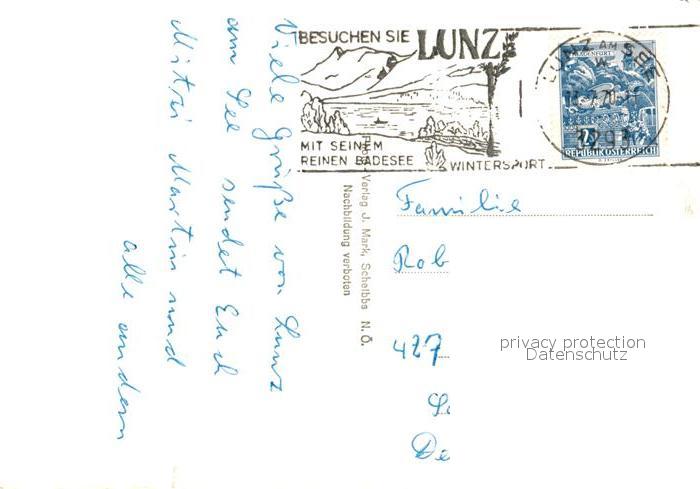 Viele Grüße von Lunz
am See sendet Euch
Mitzi Martin und
alle andern
BESUCHEN SIE LUNZ
MIT SEINEM
REINEN BADESEE
WINTERSPORT
LUNZ AM SEE
KLAGENFURT
REPUBLIK ÖSTERREICH
Verlag J. Mark, Scheibbs N. Ö.
Nachbildung verboten
Familie
Rob
427
De
privacy protection
Datenschutz